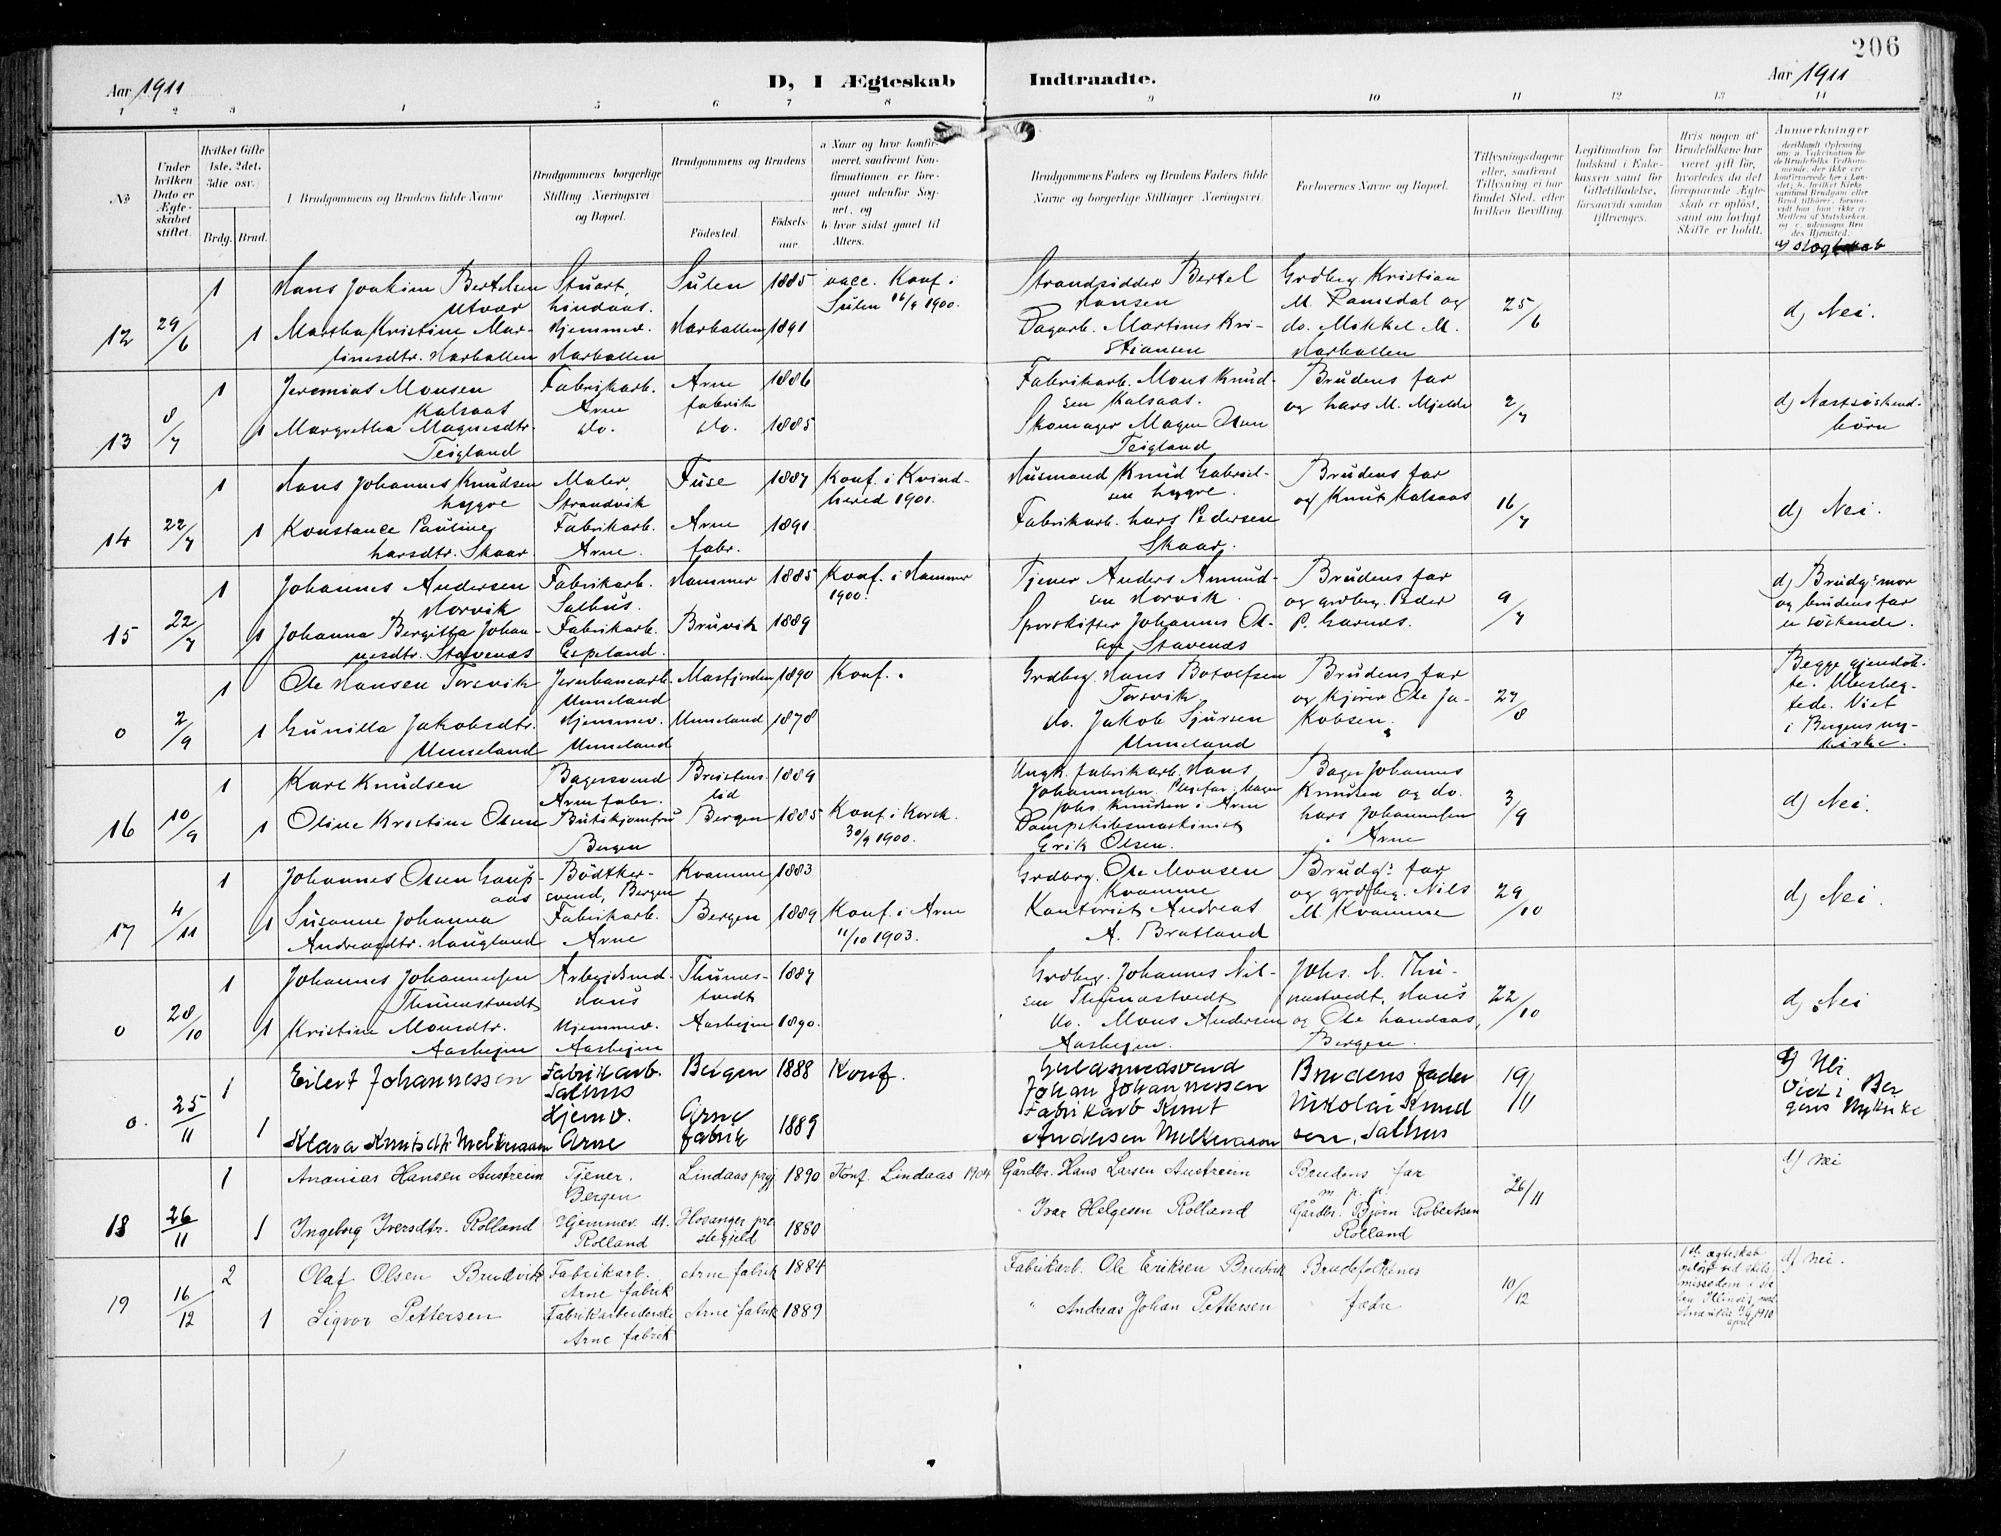 206
Aar 1911
D, I Ægteskab Indtraadte.
Aar 1911
1 2 3 4 5 6 7 8 9 10 11 12 13 14
No
Under hvilken Dato er Ægteskabet stiftet.
Hvilket Gifte 1ste, 2det, 3die osv.
Brdg. Brud.
I Brudgommens og Brudens fulde Navne
Brudgommens borgerlige Stilling Næringsvei og Bopæl.
Brudgommens og Brudens
Fødested.
Fødselsaar.
a Naar og hvor konfirmeret, saafremt Konfirmationen er foregaaet udenfor Sognet, og
b hvor sidst gaaet til Alters.
Brudgommens Faders og Brudens Faders fulde Navne og borgerlige Stillinger (Næringsvei)
Forlovernes Navne og Bopæl.
Tillysningsdagene eller, saafremt Tillysning ei har fundet Sted, efter hvilken Bevilling.
Legitimation for Indskud i Enkekassen samt for Giftetilladelse, forsaavidt saadan tiltrænges.
Hvis nogen af Brudefolkene har været gift før, hvorledes da det foregaaende Ægteskab er opløst, samt om lovligt Skifte er holdt.
Anmærkninger
12 29/6 1 Hans Joakim Bertelsen Utvær Stuart, Lindaas. Sulen 1885 vacc. Konf. i Sulen 16/9 1900. Strandsidder Bertel Hansen Grdbrg. Kristian M. Ramsdal og 25/6 d) Nei.
1 Martha Kristine Martinesdtr. Narhallen Hjemmev. Narhallen Narhallen 1891 Dagarb. Martines Kristiansen do. Mikkel M. Narhallen
13 8/7 1 Jeremias Monsen Kalsaas Fabrikarb. Arne Arne fabrik 1886 Fabrikarb. Mons Knudsen Kalsaas. Brudens far og Lars M. Mjelde 2/7 d) Næstsøskendbørn
1 Margretha Magnesdtr. Teigland do. do. 1885 Skomager Magne Olsen Teigland
14 22/7 1 Hans Johannes Knudsen Lygre Maler, Strandvik Fuse 1887 Konf. i Kvindhered 1901. Husmand Knud Gabrielsen Lygre. Brudens far og Knut Kalsaas 16/7 d) Nei.
1 Konstance Pauline Larsdtr. Skaar Fabrikarb. Arne. Arne fabr. 1891 Fabrikarb. Lars Pedersen Skaar.
15 22/7 1 Johannes Andersen Morvik Fabrikarb. Salhus. Hammer 1885 Konf. i Hammer 1900. Tjener Anders Amundsen Morvik. Brudens far og grdbrg. Peder P. Garnes. 9/7 d) Brudg. mor og brudens far er söskende.
1 Johanna Bergitha Johannesdtr. Stavenæs Fabrikarb. Espeland. Bruvik 1889 Sporskifter Johannes Olsen Stavenæs
0 2/9 1 Ole Hansen Torsvik Jernbanearb. Unneland Masfjorden 1890 Konf. Grdbrg. Hans Botolfsen Torsvik Brudens far og kjører Ole Jakobsen 27/8 Begge gjendøbte. Vict i Bergens nykirke.
1 Gunilla Jakobsdtr. Unneland Hjemmev. Unneland Unneland 1878 do. Jakob Sjursen Unneland
16 10/9 1 Karl Knudsen Bagersvend Arne fabr. 1889 Ungk. fabrikarb. Hans Johannesen. Plejefar: bager Johs. Knudsen i Arne Bager Johannes Knudsen og do. Lars Johannesen i Arne 3/9 d) Nei.
1 Oline Kristine Olsen Butikjomfru Bergen Bergen 1885 Konf. i Korsk. 30/9 1900. Dampskibsmaskinist Erik Olsen.
17 4/11 1 Johannes Olsen Gaupaas Bødtkersvend, Bergen Kvamme 1883 Grdbrg. Ole Monsen Kvamme Brudg: far og grdbrg. Nils M. Kvamme 29/10 d) Nei.
1 Susanne Johanna Andreasdtr. Haugland Fabrikarb. Arne Bergen 1889 Konf. i Arne 11/10 1903. Kontorist Andreas A. Bratland
0 28/10 1 Johannes Johannesen Thunestvedt Hans Thunestvedt 1887 Grdbrg. Johannes Nilsen Thunestvedt Johs. N. Thunestvedt, Haus 22/10 d) Nei
1 Kristine Monsdtr. Aasheim Hjemmev. Aasheim Aasheim 1890. do. Mons Andersen Aasheim. og Ole Landaas, Bergen.
0. 25/11 1 Eilert Johannessen Fabrikarb. Salhus Bergen 1888 Konf. Guldsmedsvend Johan Johannessen Brudens fader 19/11 d) Nei Viet i Bergens Nykirke
1 Klara Knutsdtr. Melkeraaen Hjemv. Arne Arne fabrik 1889 Fabrikarb Knut Andersen Melkeraaen Nikolai Knudsen, Salhus
18 26/11 1 Ananias Hansen Austreim Tjener. Bergen Lindaas prgj 1890 Konf. Lindaas 1904 Gårdbr. Hans Larsen Austreim Brudens far 26/11 d) nei
1 Ingeborg Iversdtr. Rolland Hjemmev. dt. Rolland Hosanger prestegjeld 1880 " Ivar Helgesen Rolland Gårdbr. Bjørn Robertsen Rolland
19 16/12 2 Olaf Olsen Brudvik Fabrikarb. Arne fabrik Arne fabrik 1884 Fabrikarb. Ole Eriksen Brudvik Brudefolkenes fædre 10/12 1ste ægteskab opløst ved skilsmissedom d) nei.
1 Sigvor Pettersen Fabrikarbeiderske Arne fabrik Arne fabrik 1889 " Andreas Johan Pettersen